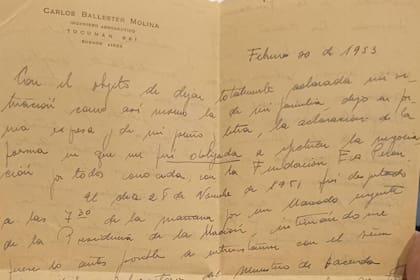 CARLOS BALLESTER MOLINA
INGENIERO AERONAUTICO
TUCUMAN
BUENOS AIRES
Febrero 20 de 1953
Con el objeto de dejar totalmente aclarada mi si-
tuación como así mismo la de mi familia, dejo en po-
mi esposa y de mi puño y letra, la aclaración de la
forma en que me fui obligado a efectuar la negocia
ción por todos conocida, con la Fundación Eva Perón
El día 28 de de 1951, fui
a las 7 30 de la mañana por un llamado urgente
de la Presidencia de la Nación,
fuese lo antes posible a entrevistarme con el señor
del Ministro de Hacienda